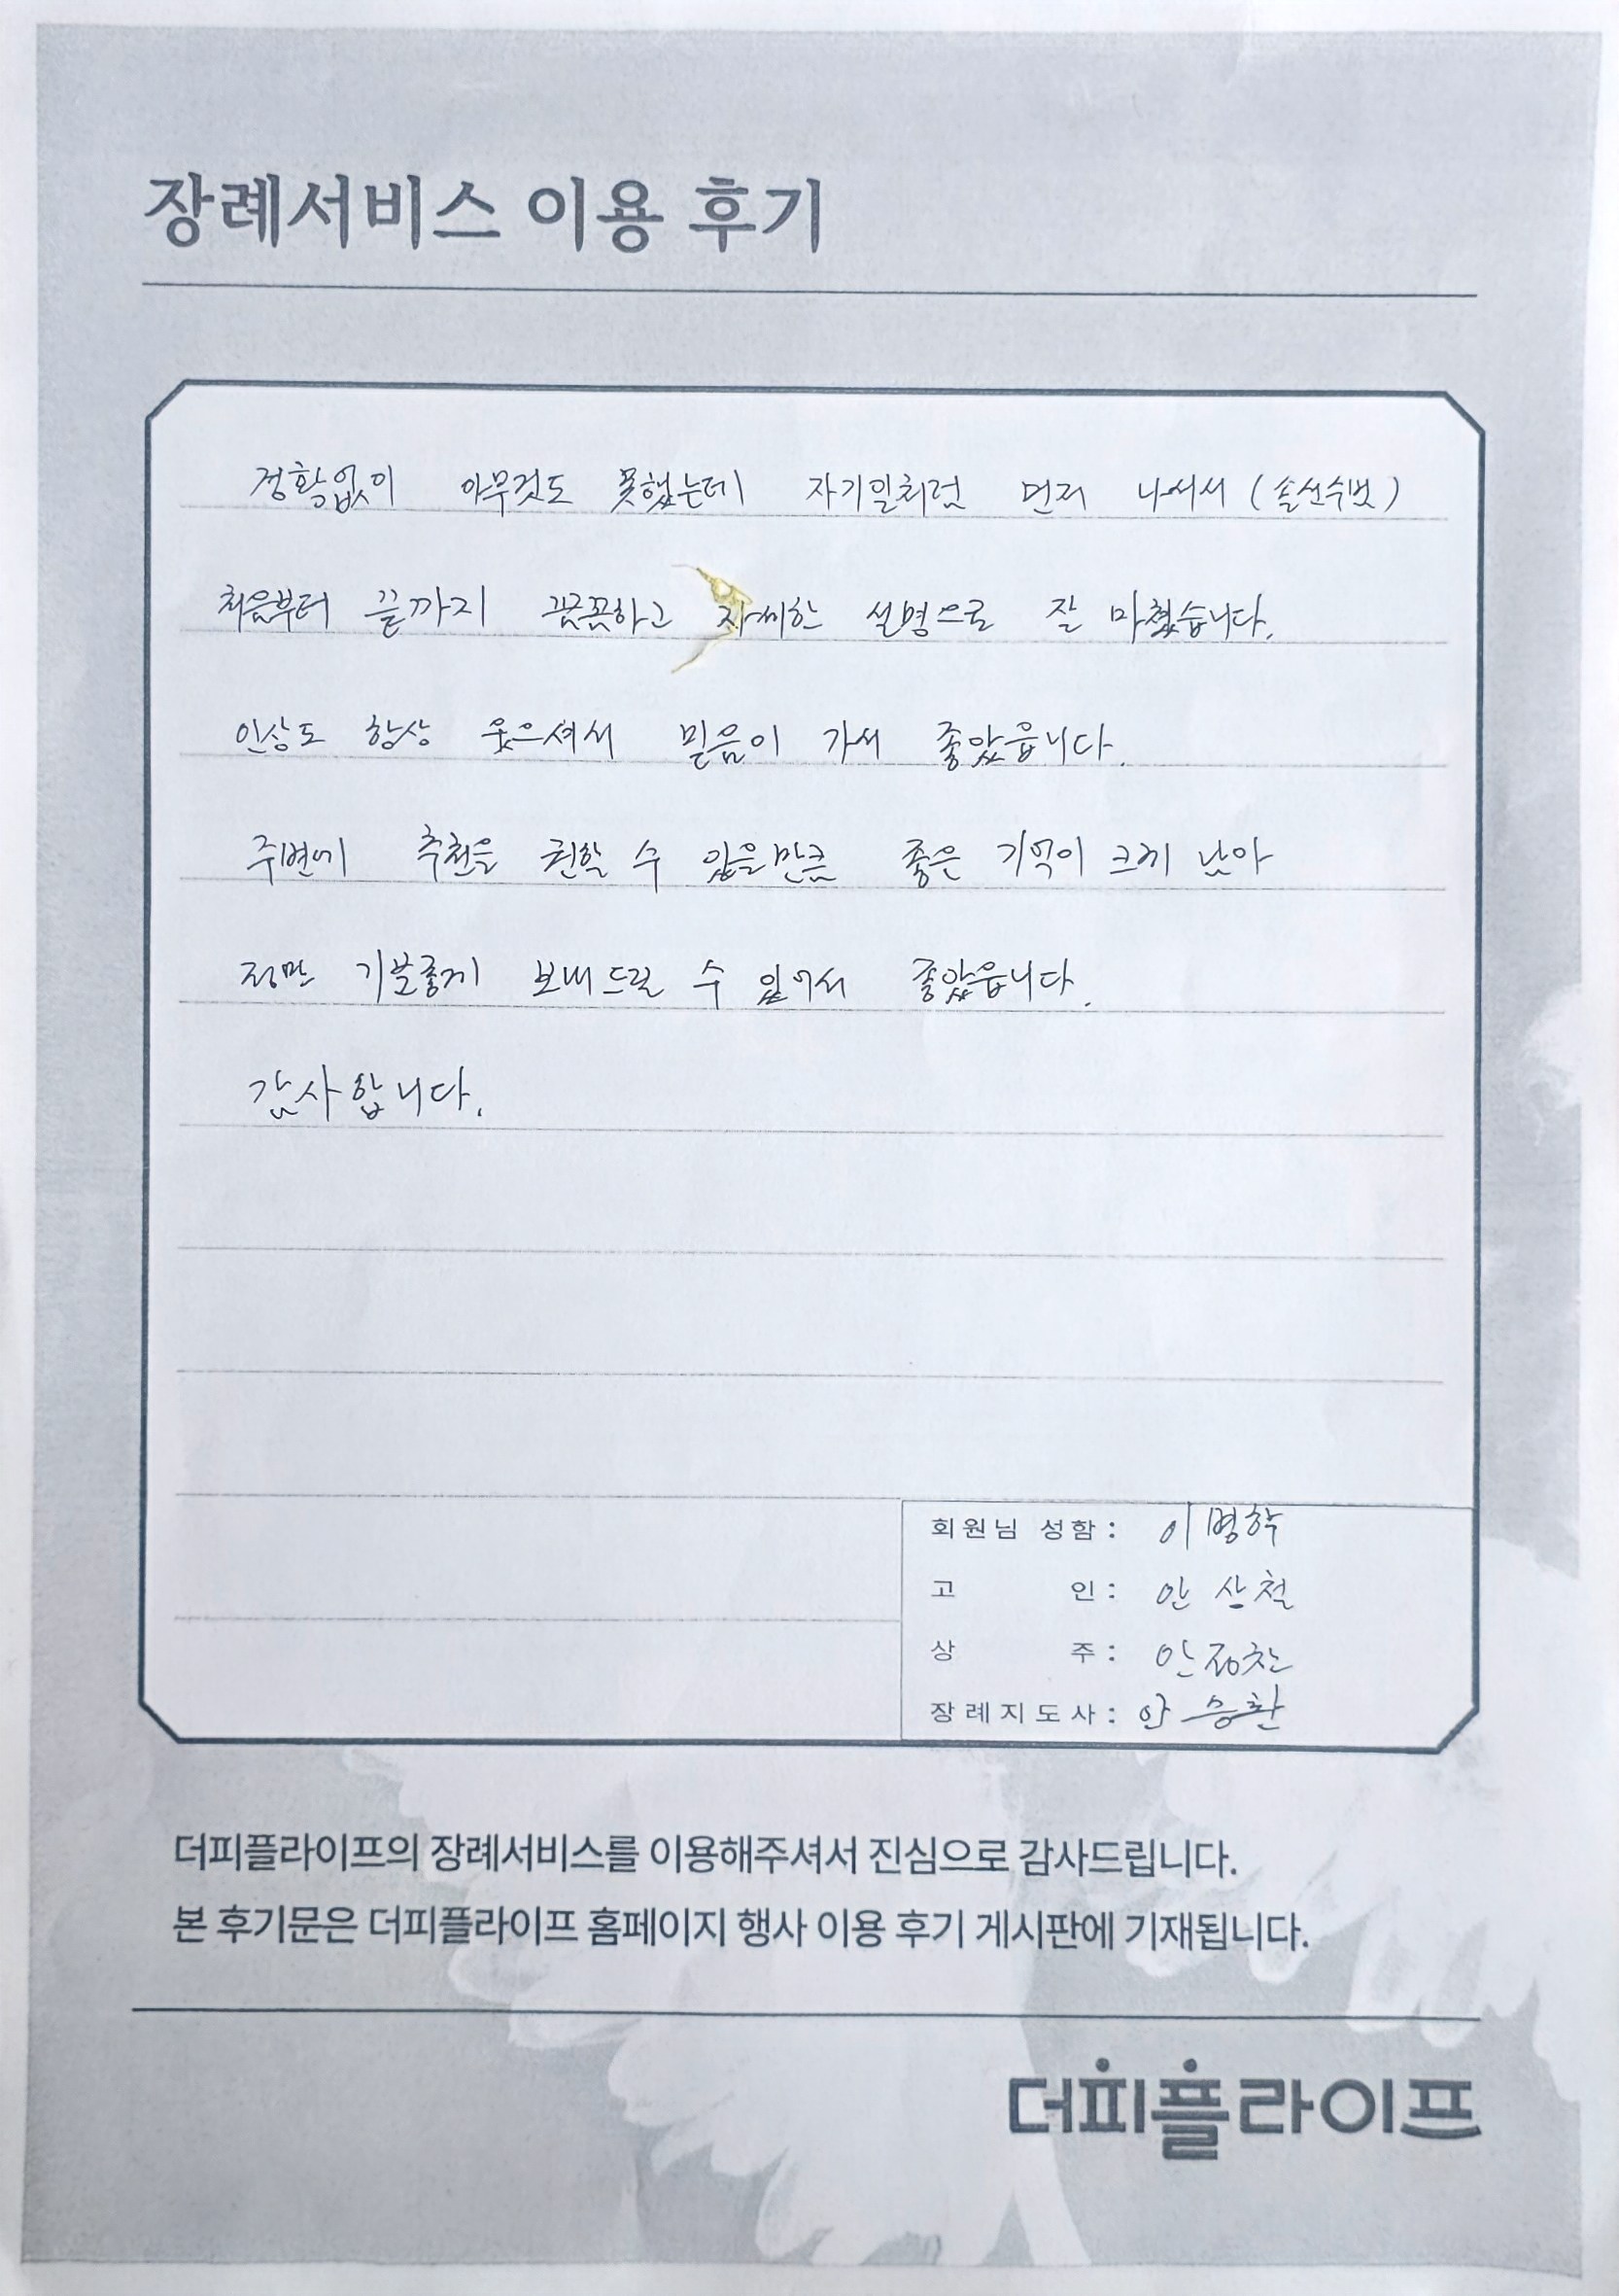 장례서비스 이용 후기
정황없이 아무것도 못했는데 자기일처럼 먼저 나서서 (솔선수범)
처음부터 끝까지 꼼꼼하고 자세한 설명으로 잘 마쳤습니다.
인상도 항상 웃으셔서 믿음이 가서 좋았읍니다.
주변에 추천을 권할 수 있을만큼 좋은 기억이 크게 남아
정말 기분좋게 보내드릴 수 있어서 좋았읍니다.
감사합니다.
회원님 성함 : 이명학
고 인 : 안상철
상 주 : 안정찬
장례지도사 : 안승환
더피플라이프의 장례서비스를 이용해주셔서 진심으로 감사드립니다.
본 후기문은 더피플라이프 홈페이지 행사 이용 후기 게시판에 기재됩니다.
더피플라이프